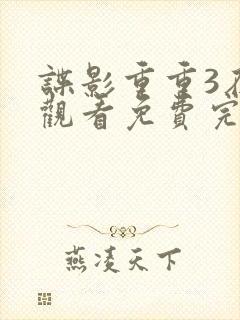 諜影重重3在
觀看免費完
燕凌天下